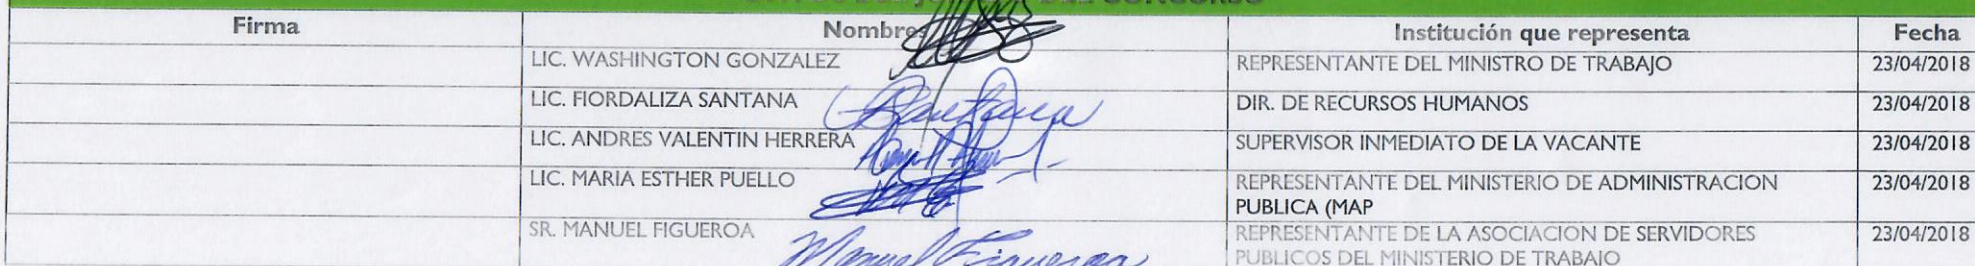 DEL CONCURSO
Firma Nombres Institución que representa Fecha
LIC. WASHINGTON GONZALEZ REPRESENTANTE DEL MINISTRO DE TRABAJO 23/04/2018
LIC. FIORDALIZA SANTANA DIR. DE RECURSOS HUMANOS 23/04/2018
LIC. ANDRES VALENTIN HERRERA SUPERVISOR INMEDIATO DE LA VACANTE 23/04/2018
LIC. MARIA ESTHER PUELLO REPRESENTANTE DEL MINISTERIO DE ADMINISTRACION 23/04/2018
PUBLICA (MAP
SR. MANUEL FIGUEROA REPRESENTANTE DE LA ASOCIACION DE SERVIDORES 23/04/2018
Manuel Figueroa PUBLICOS DEL MINISTERIO DE TRABAJO